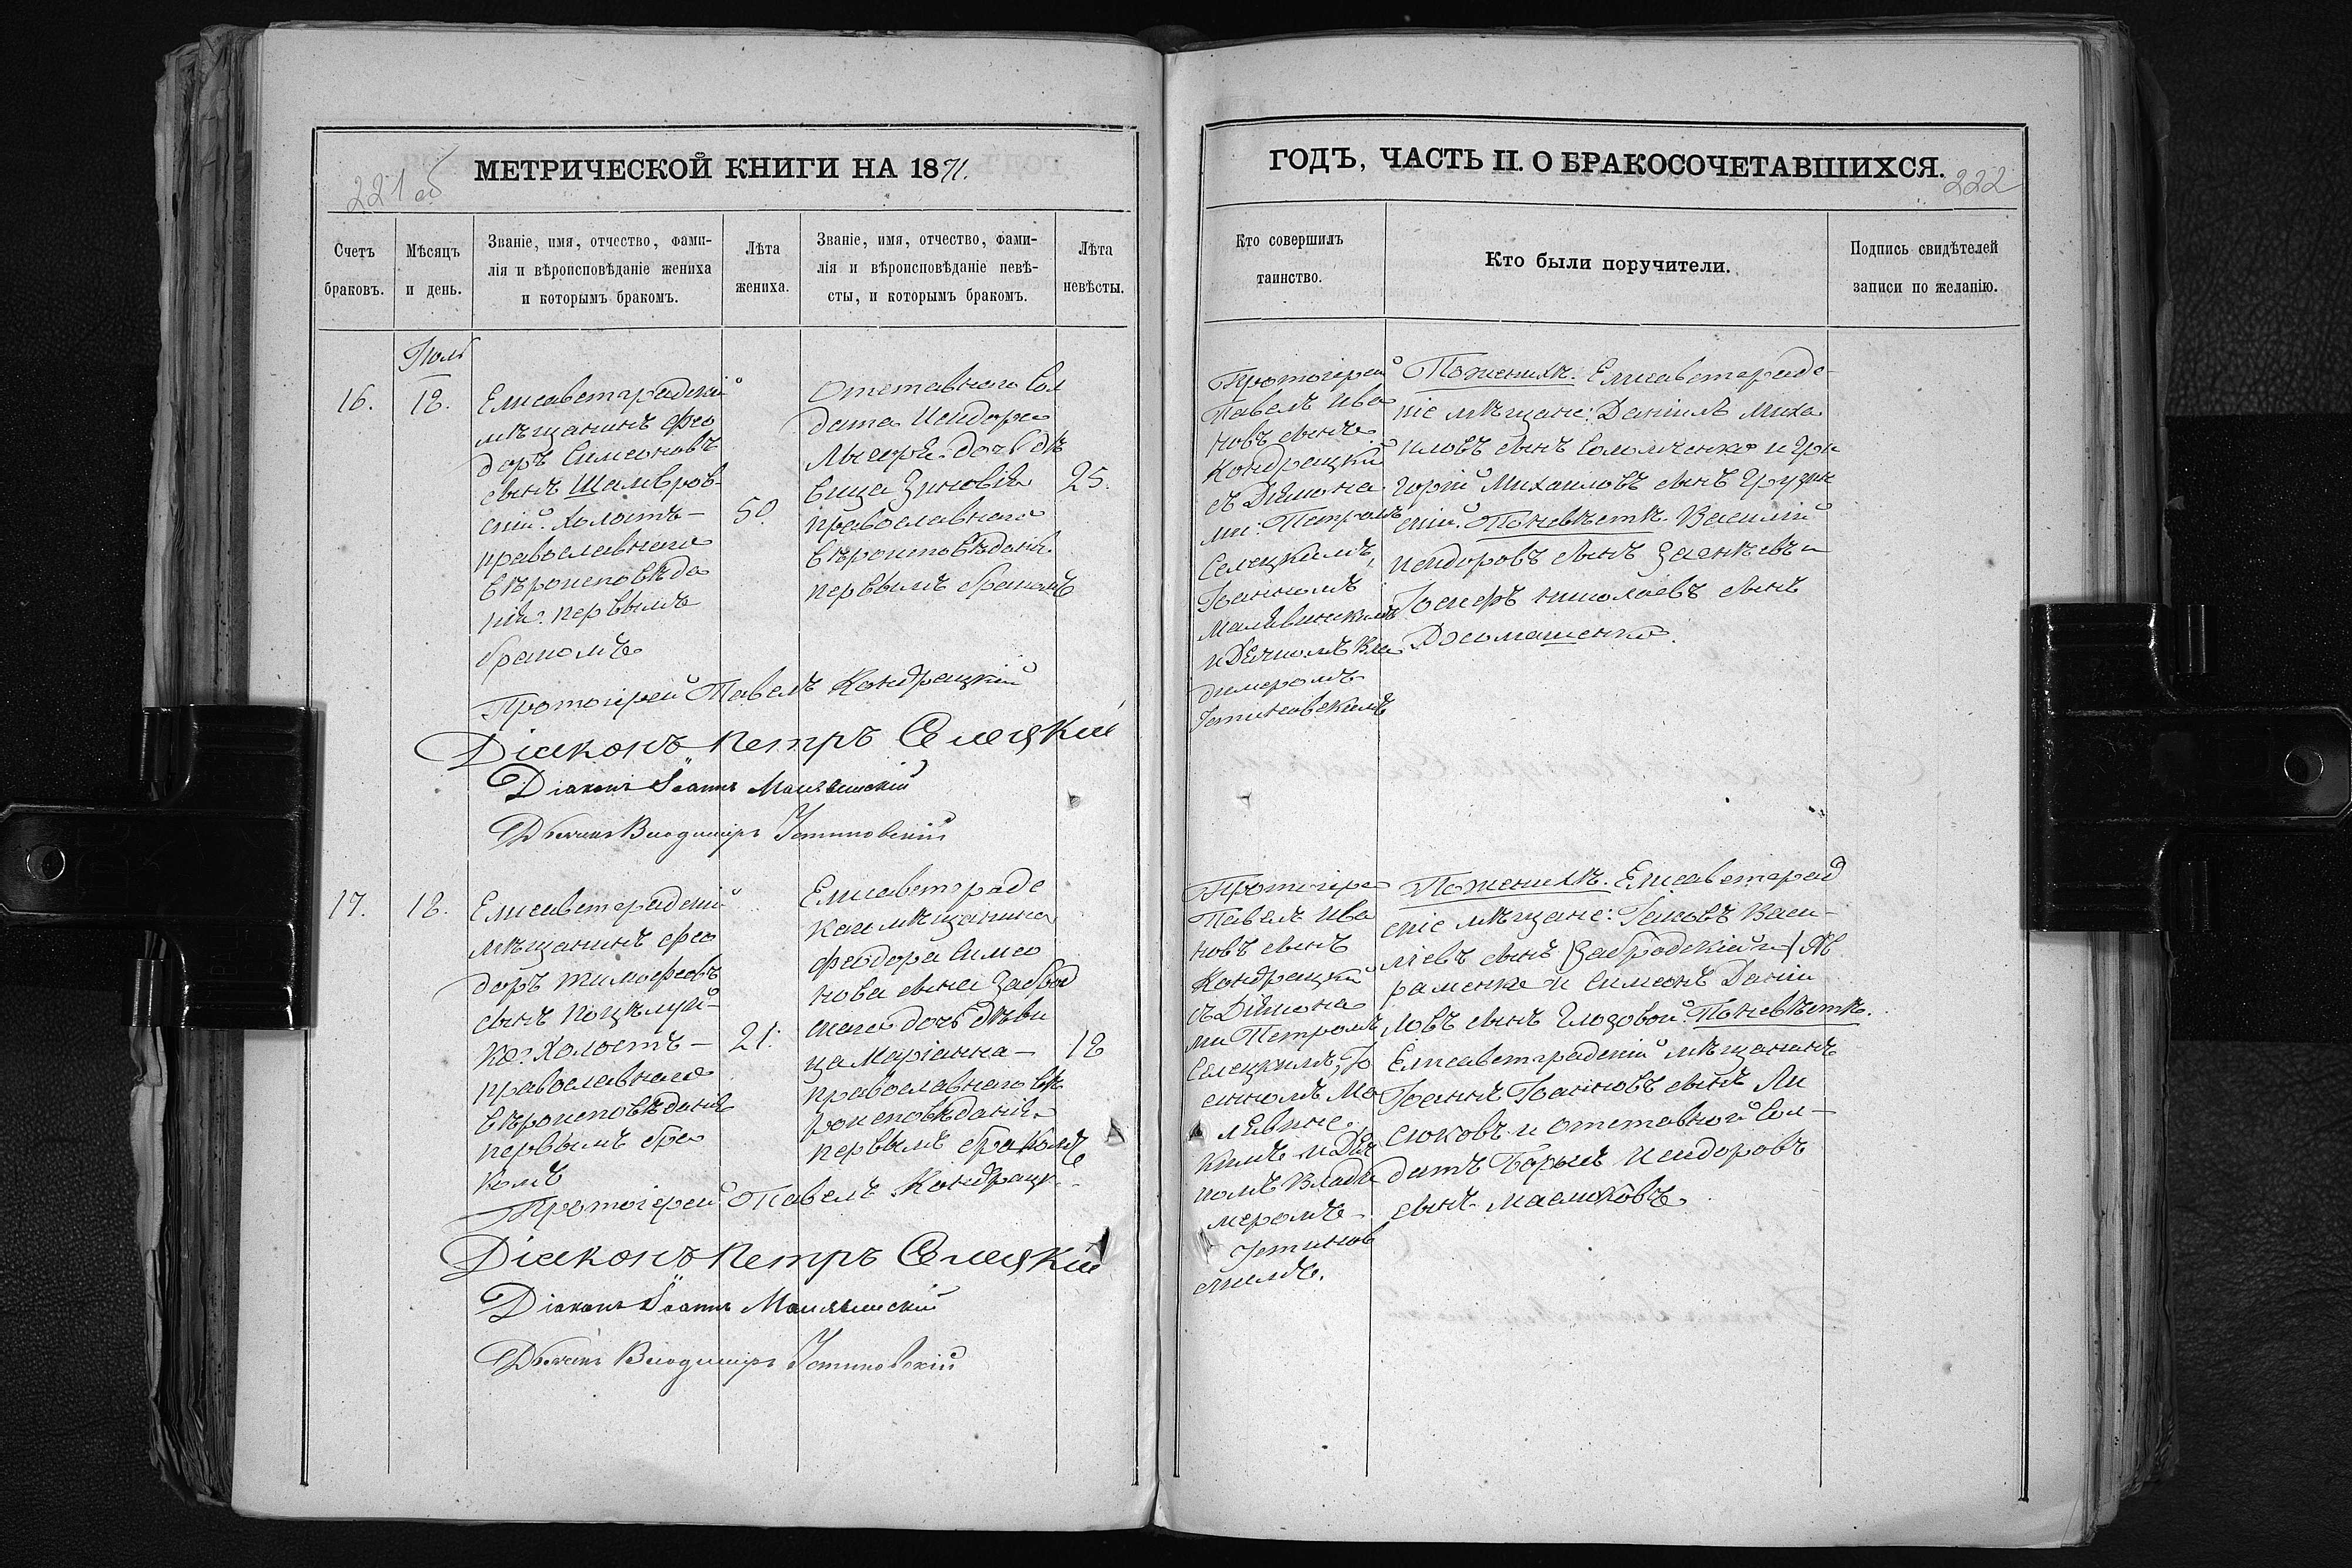 221 об
МЕТРИЧЕСКОЙ КНИГИ НА 1871.
Счетъ браковъ.
Мѣсяцъ и день.
Званіе, имя, отчество, фами-
лія и вѣроисповѣданіе жениха
и которымъ бракомъ.
Лѣта жениха.
Званіе, имя, отчество, фами-
лія и вѣроисповѣданіе невѣ-
сты, и которымъ бракомъ.
Лѣта невѣсты.
16.
18.
Елисаветградскій
мѣщанинъ Фео
доръ Симеоновъ
сынъ
скій. Холостъ –
православнаго
вѣроисповѣда
нія. первымъ
бракомъ
50.
Отставнаго Сол
дата Исидора
дочь дѣ
вица Зиновія
православнаго
вѣроисповѣданія.
первымъ бракомъ
25.
Протоіерей Павелъ Кондрацкій
Діаконъ Петръ Селецкій
Діаконъ Іоаннъ Малявинскій
Дьячекъ Владиміръ Устиновскій
17.
18.
Елисаветградскій
мѣщанинъ Фео
доръ Тимофеевъ
сынъ
ко. Холостъ –
православнаго
вѣроисповѣданія
первымъ бра
комъ
21.
Елисаветградс
каго мѣщанина
Феодора Симео
нова сына Заброд
скаго дочь дѣви
ца Маріанна –
православнаго вѣ
роисповѣданія
первымъ бракомъ
18
Протоіерей Павелъ Кондрацк
Діаконъ Петръ Селецкій
Діаконъ Іоаннъ Малявинскій
Дьячекъ Владиміръ Устиновскій
ГОДЪ, ЧАСТЬ II. О БРАКОСОЧЕТАВШИХСЯ.
222
Кто совершилъ
таинство.
Кто были поручители.
Подпись свидѣтелей
записи по желанію.
Протоіерей
Павелъ Ива
новъ сынъ
Кондрацкій
съ Діакона
ми: Петромъ
Селецкимъ,
Іоанномъ
Малявинскимъ
и Дячкомъ Вла
димеромъ
Устиновскимъ
По женихѣ. Елисаветградс
кіе мѣщане: Даніилъ Миха
иловъ сынъ Соломченко и Гри
горій Михаиловъ сынъ Грузин
скій. По невѣстѣ. Василій
Исидоровъ сынъ и
Іосифъ Николаевъ сынъ
Протоіере
Павелъ Ива
новъ сынъ
Кондрацкій
съ Діакона
ми Петромъ
Селецкимъ, Іо
анномъ Ма
лявинс
кимъ и Дяч
комъ Влади
меромъ
Устинов
скимъ.
По женихѣ. Елисаветград
скіе мѣщане: Іаковъ Васи-
ліевъ сынъ (Забродскій и) Ав
раменко и Симеонъ Даніи
ловъ сынъ Глозовой. По невѣстѣ.
Елисаветградскій мѣщанинъ
Іоаннъ Іоанновъ сынъ Ли
сюковъ и отставной Сол-
датъ Борысъ Исидоровъ
сынъ Маслюковъ.